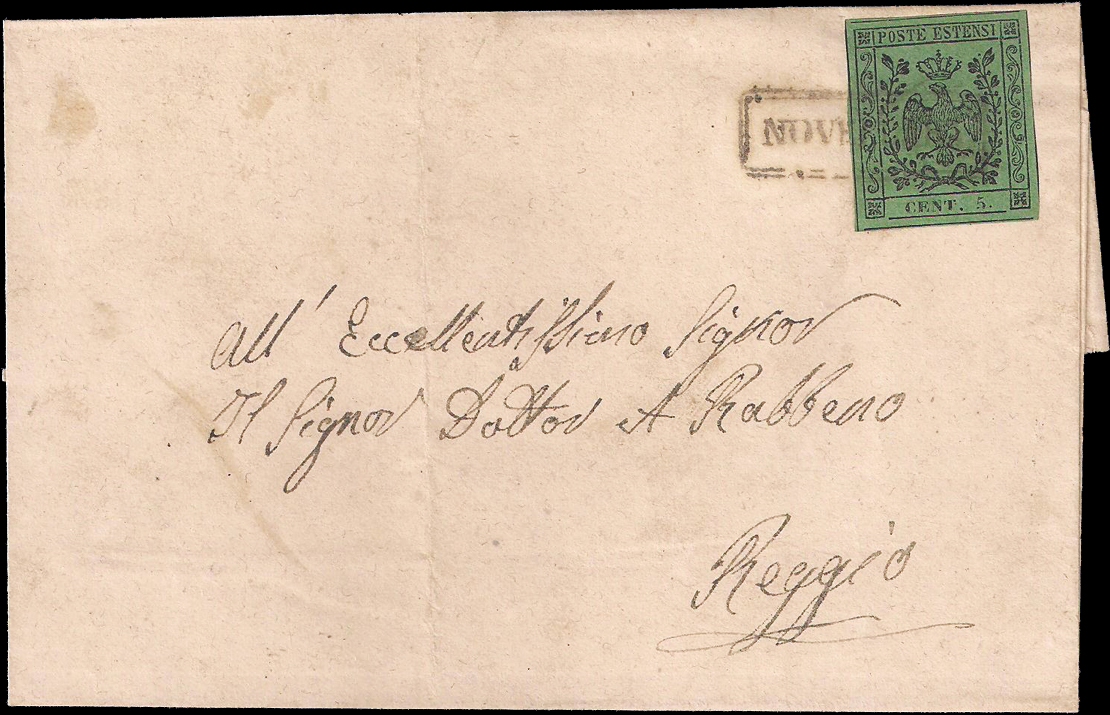 POSTE ESTENSI
CENT. 5.
All' Eccellentissimo Signor
Il Signor Dottor A Rabbeno
Reggio